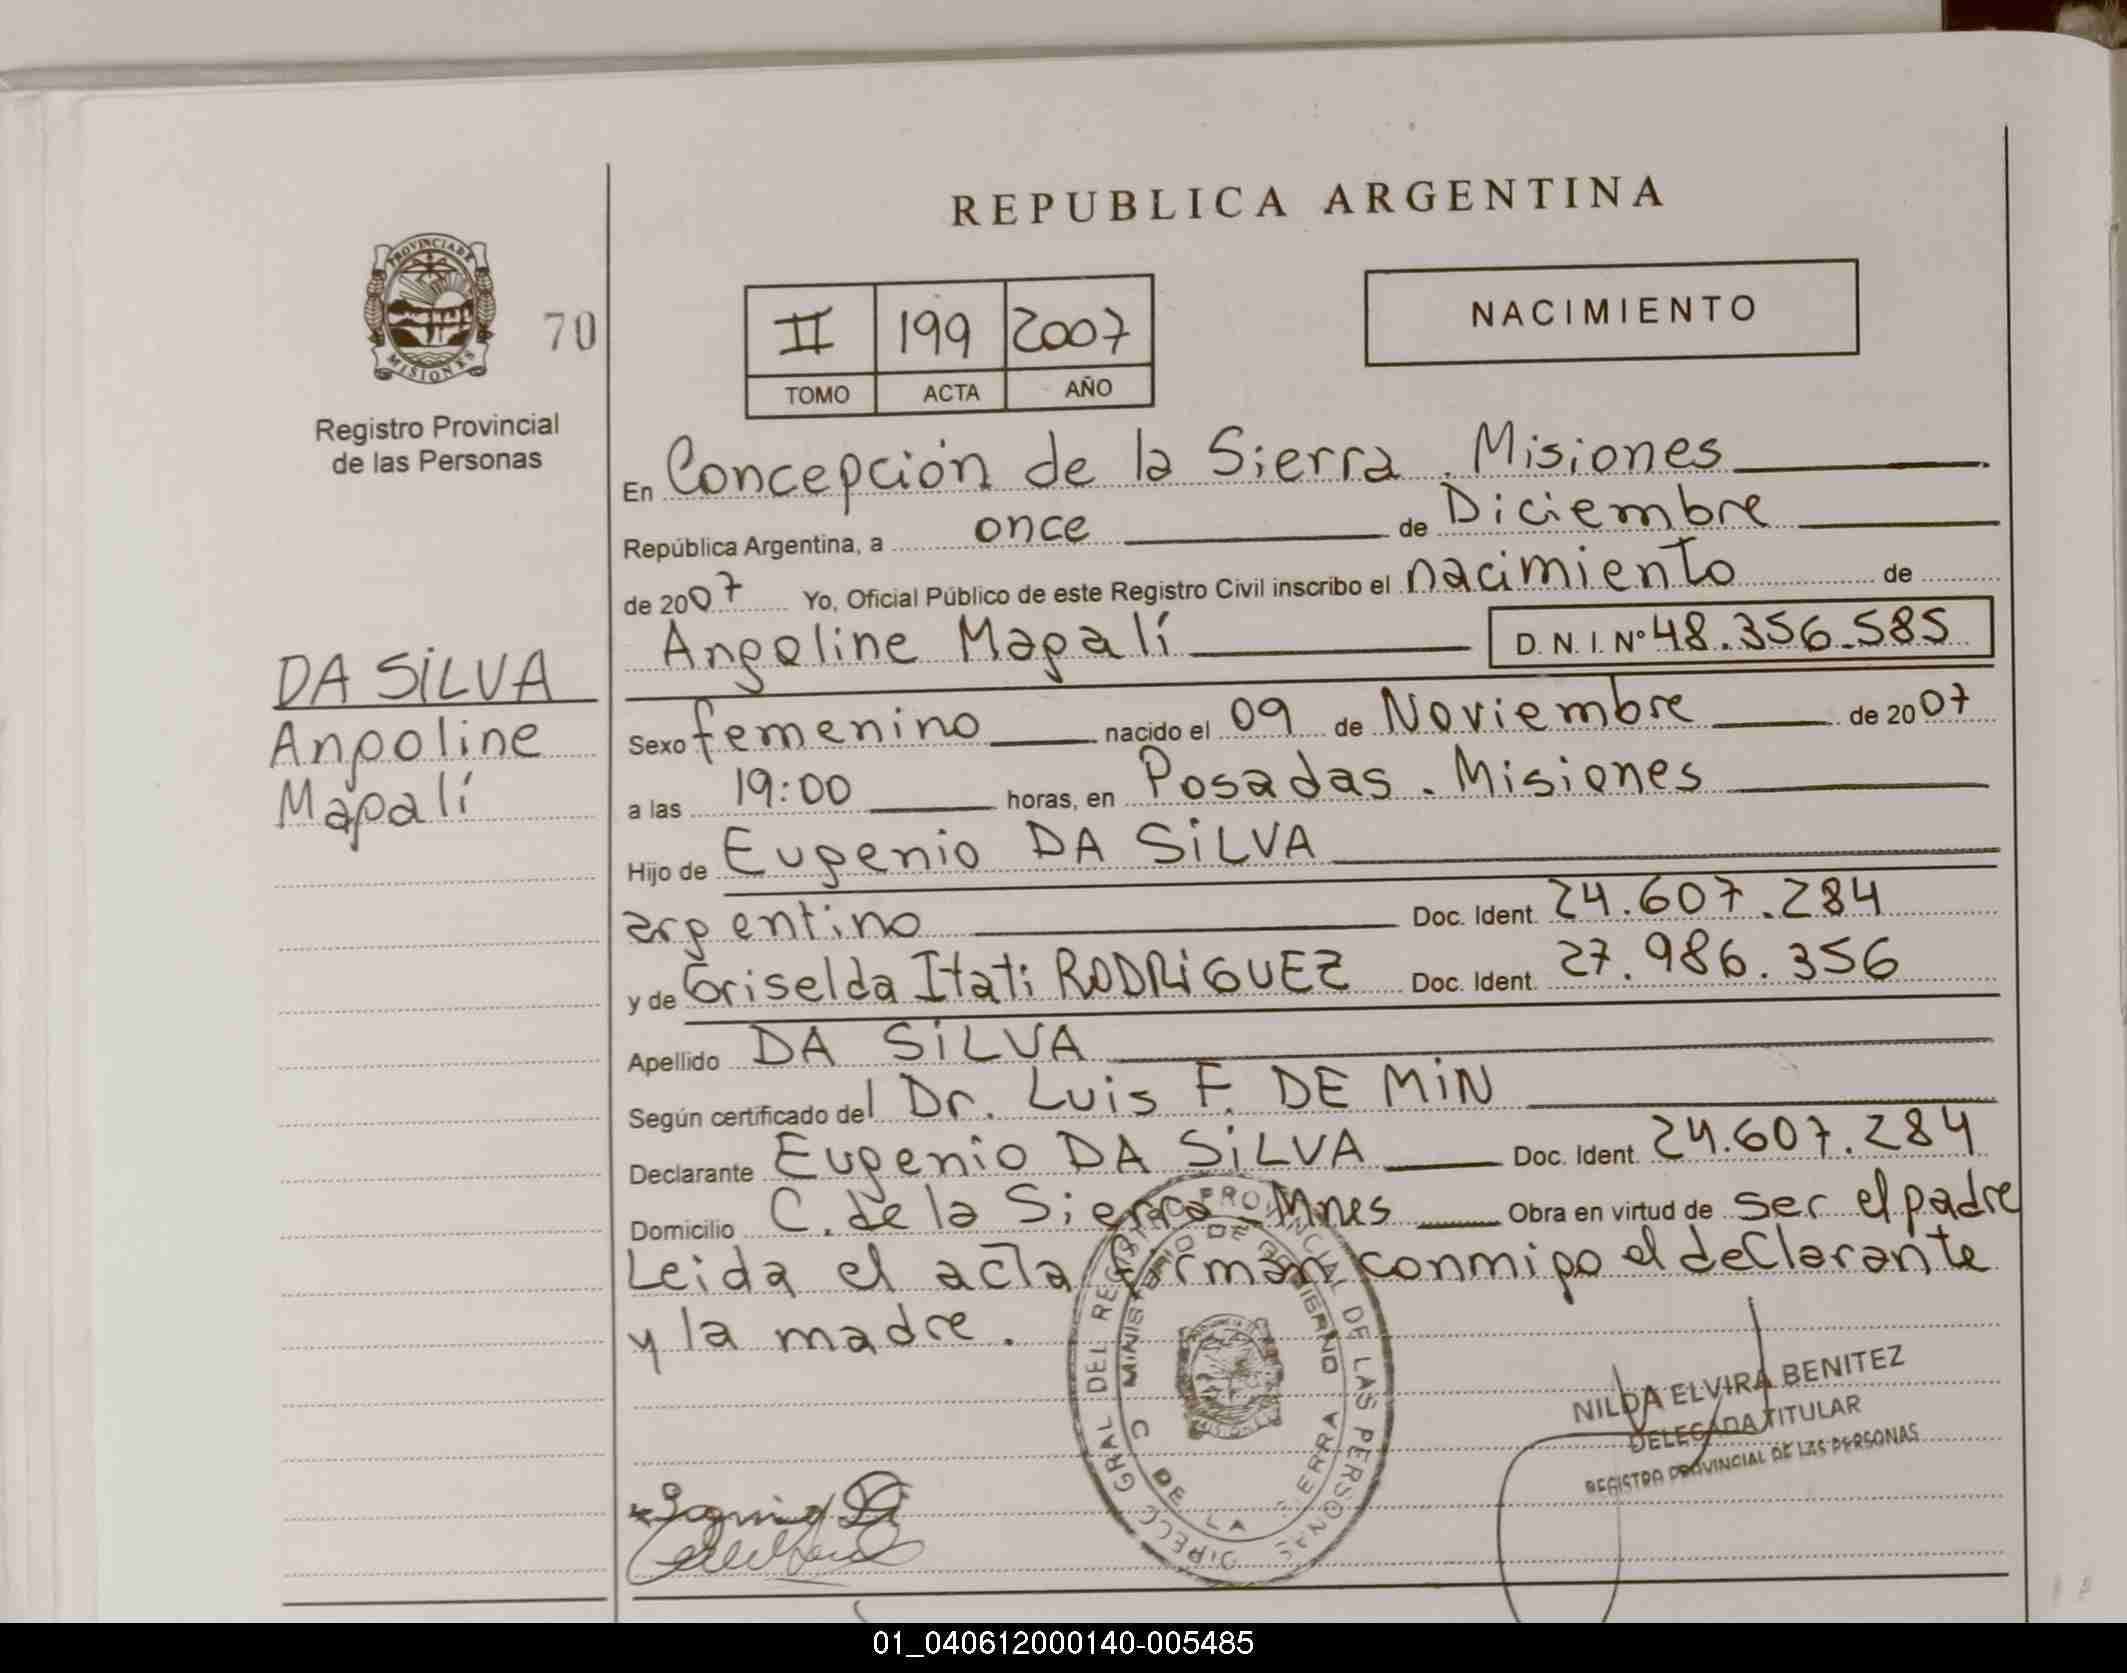 REPUBLICA ARGENTINA
PROVINCIA DE
MISIONES
70
Registro Provincial
de las Personas
II 199 2007
TOMO ACTA AÑO
NACIMIENTO
En Concepción de la Sierra. Misiones
República Argentina, a once de Diciembre
de 2007 Yo, Oficial Público de este Registro Civil inscribo el nacimiento de
Angeline Magalí D.N.I. Nº 48.356.585
DA SiLVA
Angeline
Magalí
Sexo femenino nacido el 09 de Noviembre de 2007
a las 19:00 horas, en Posadas. Misiones
Hijo de Eugenio DA SiLVA
argentino Doc. Ident. 24.607.284
y de Griselda Itati RODRiGUEZ Doc. Ident. 27.986.356
Apellido DA SiLVA
Según certificado del Dr. Luis F. DE MiN
Declarante Eugenio DA SiLVA Doc. Ident. 24.607.284
Domicilio C. de la Sierra - Mnes Obra en virtud de ser el padre
Leida el acta firman conmigo el declarante
y la madre.
DIRECC GRAL DEL REGISTRO PROVINCIAL DE LAS PERSONAS
MINISTERIO DE GOBIERNO
C DE LA SIERRA
NILDA ELVIRA BENITEZ
DELEGADA TITULAR
REGISTRO PROVINCIAL DE LAS PERSONAS
01_040612000140-005485